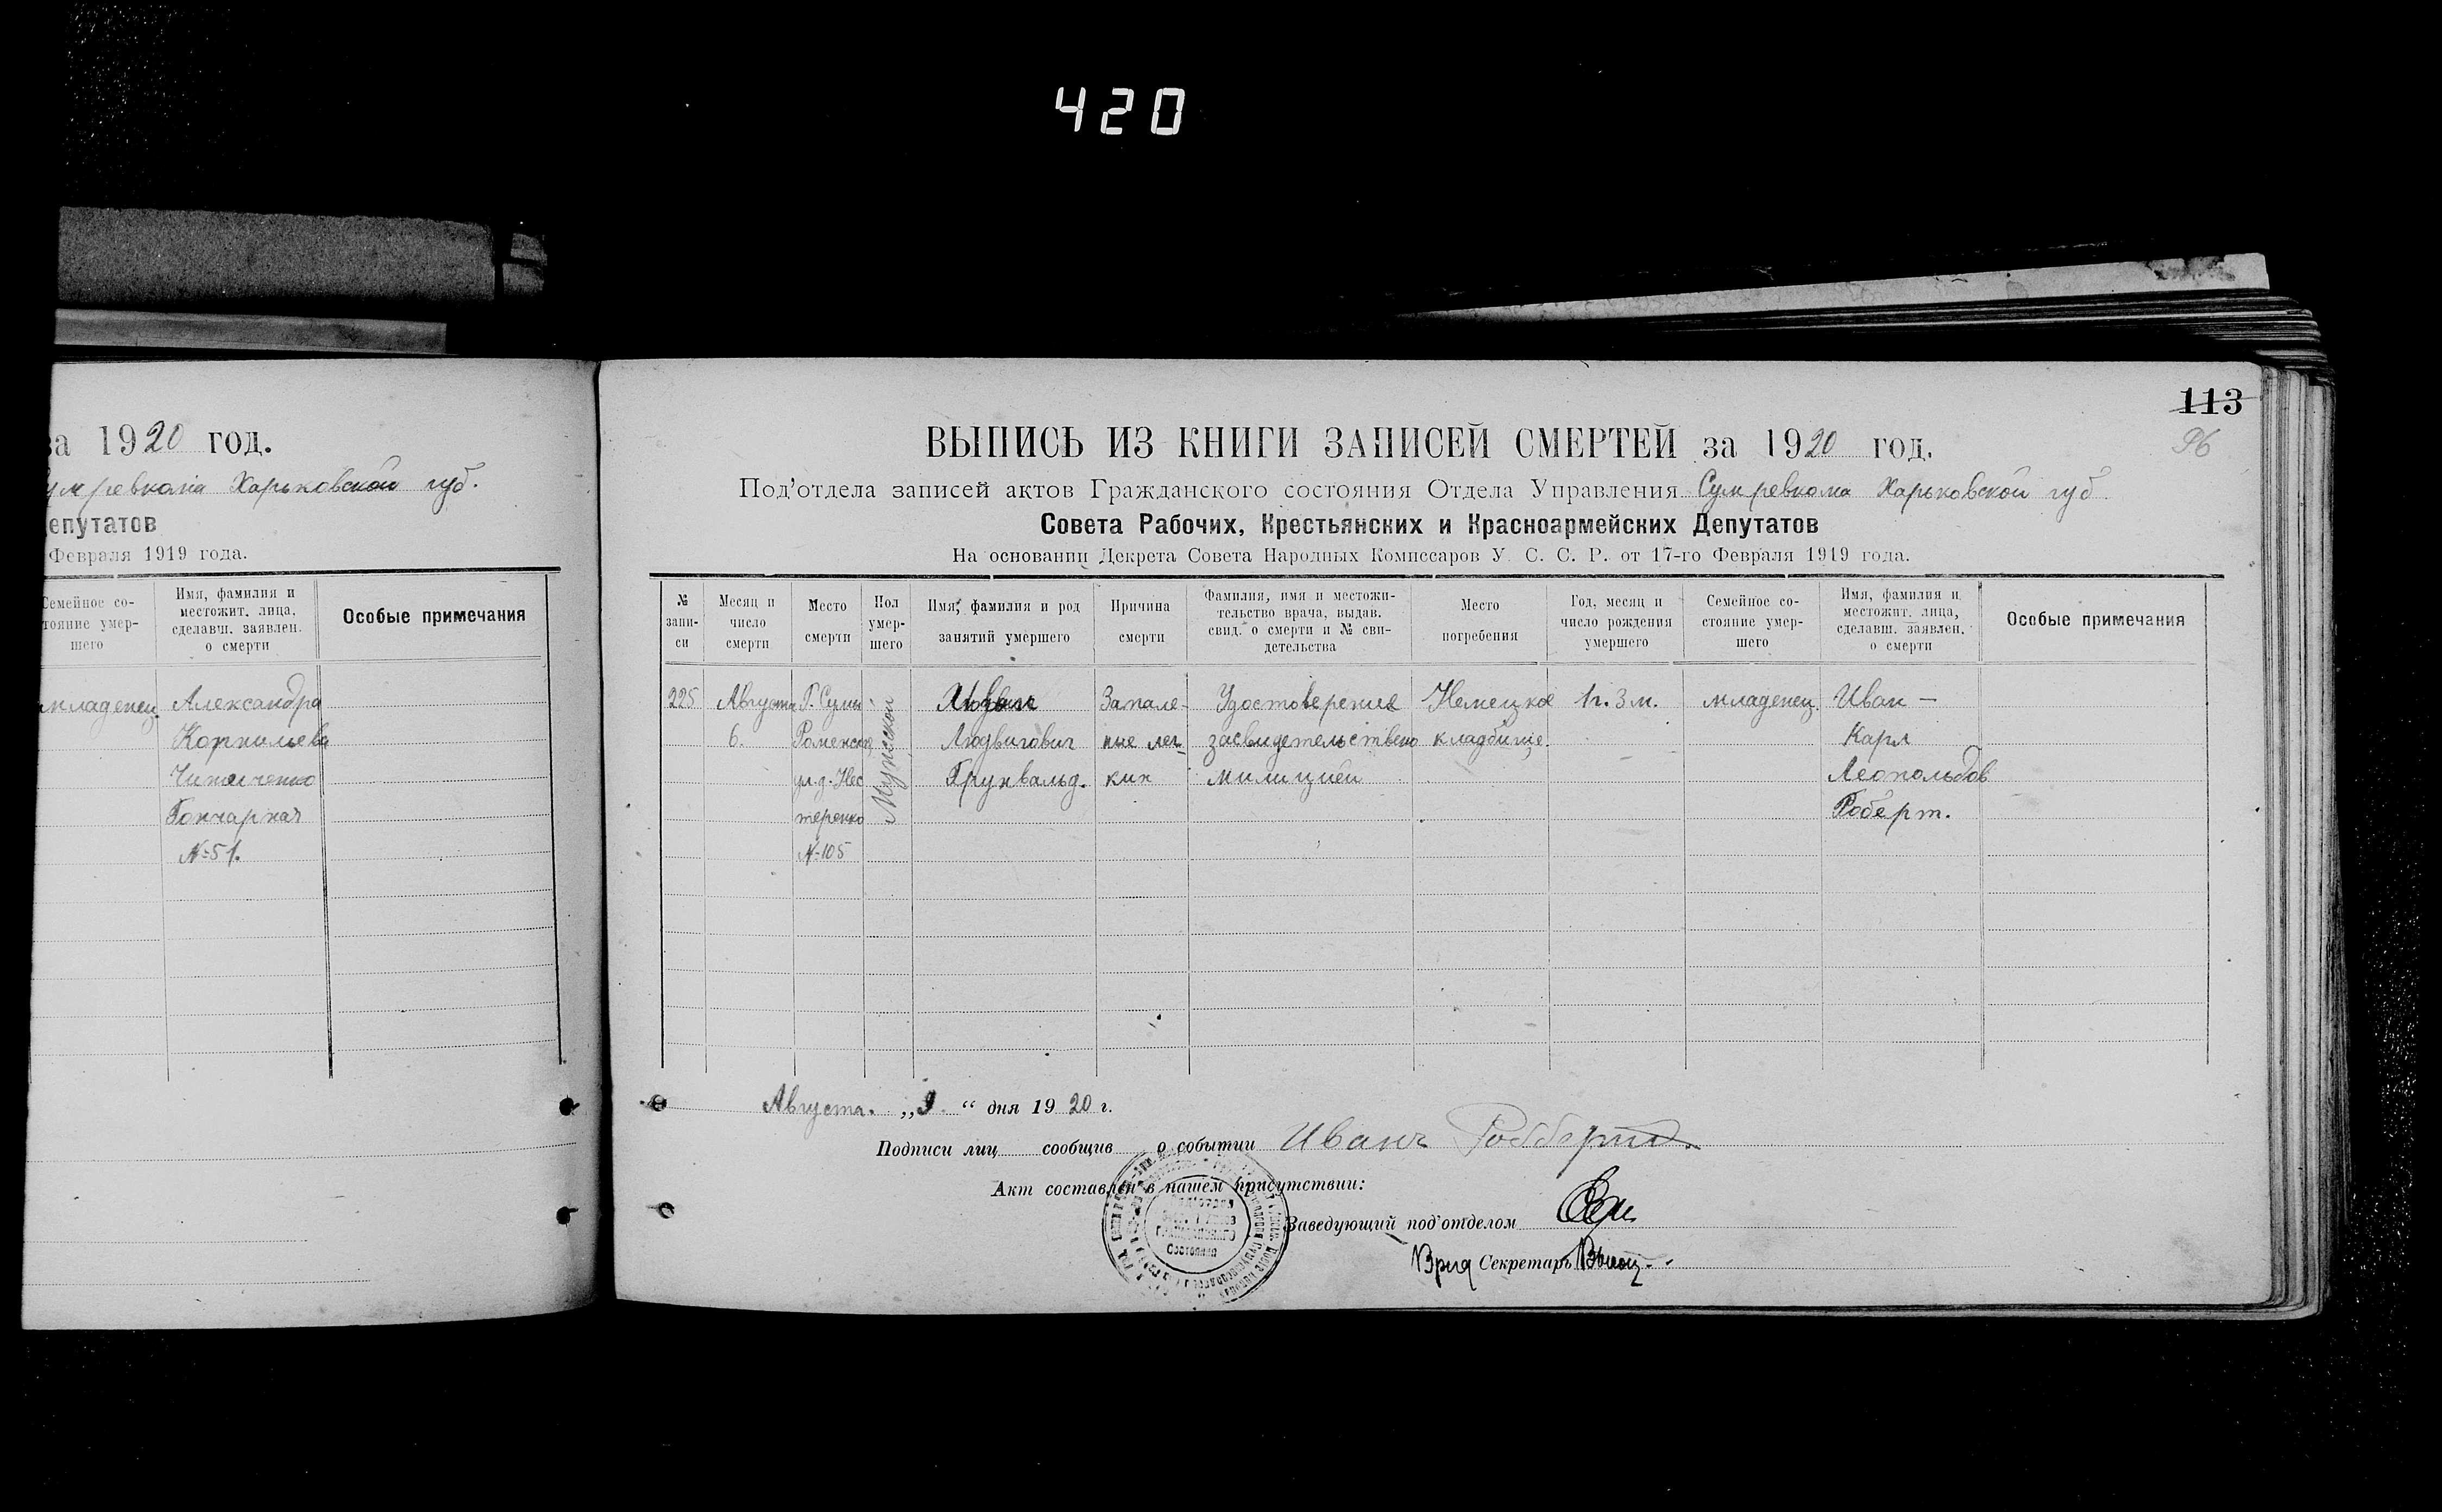 420
за 1920 год.
Сумревкома Харьковской губ.
Депутатов
Февраля 1919 года.
Семейное со-
тояние умер-
шего
Имя, фамилия и
местожит. лица,
сделавш. заявлен.
о смерти
Особые примечания
младенец.
Александра
Корнильева
Гончарная
№51.
113
96
ВЫПИСЬ ИЗ КНИГИ ЗАПИСЕЙ СМЕРТЕЙ за 1920 год.
Под'отдела записей актов Гражданского состояния Отдела Управления Сумревкома Харьковской губ
Совета Рабочих, Крестьянских и Красноармейских Депутатов
На основании Декрета Совета Народных Комиссаров У. С. С. Р. от 17-го Февраля 1919 года.
№
запи-
си
Месяц и
число
смерти
Место
смерти
Пол
умер-
шего
Имя, фамилия и род
занятий умершего
Причина
смерти
Фамилия, имя и местожи-
тельство врача, выдав.
свид. о смерти и № сви-
детельства
Место
погребения
Год, месяц и
число рождения
умершего
Семейное со-
стояние умер-
шего
Имя, фамилия и
местожит. лица,
сделавш. заявлен.
о смерти
Особые примечания
225
Августа
6.
Г. Сумы
Роменская
ул. д. Нес
теренко
№105
Мужской
Людвигович
Грунвальд.
Запале-
ние лег
ких
Удостоверение
засвидетельствено
милицией
Немецкое
кладбище.
1г. 3м.
младенец.
Иван —
Карл
Леопольдов
Роберт.
Августа. „9" дня 1920 г.
Подписи лиц сообщив о событии Иванъ Робберт
Акт составлен в нашем присутствии:
Заведующий под'отделом
Врид Секретарь
Состояния